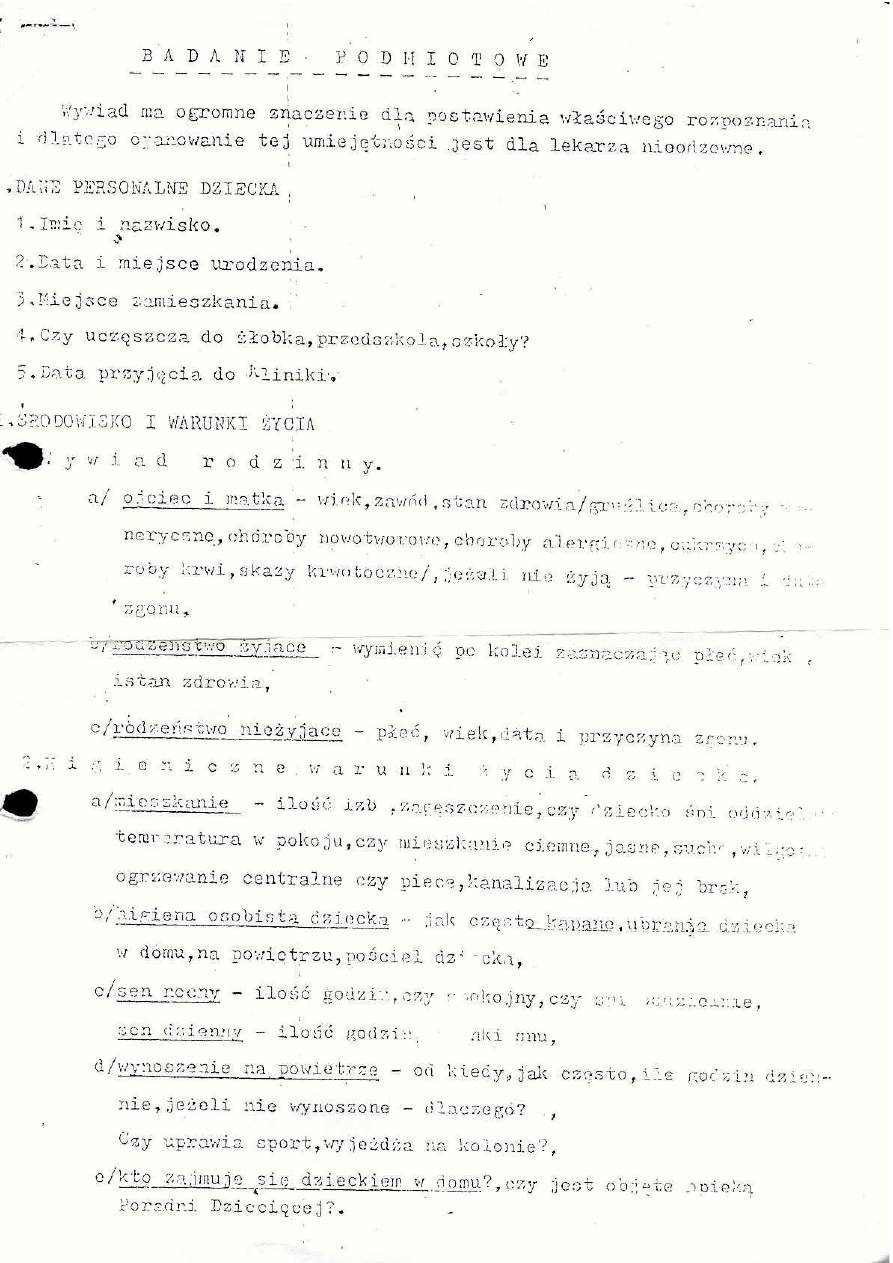 BADANIE PODMIOTOWE
Wywiad ma ogromne znaczenie dla postawienia właściwego rozpoznania
i dlatego opanowanie tej umiejętności jest dla lekarza nieodzowne.
.DANE PERSONALNE DZIECKA
1.Imię i nazwisko.
2.Data i miejsce urodzenia.
3.Miejsce zamieszkania.
4.Czy uczęszcza do żłobka,przedszkola,szkoły?
5.Data przyjęcia do Kliniki.
.ŚRODOWISKO I WARUNKI ŻYCIA
Wywiad rodzinny.
a/ ojciec i matka - wiek,zawód,stan zdrowia/gruźlica,choroby we-
neryczne,choroby nowotworowe,choroby alergiczne,cukrzyca,cho-
roby krwi,skazy krwotoczne/,jeżeli nie żyją - przyczyna i data
zgonu,
b/rodzeństwo żyjące - wymienić po kolei zaznaczając płeć,wiek ,
istan zdrowia,
c/rodzeństwo nieżyjące - płeć, wiek,data i przyczyna zgonu.
2.Higieniczne warunki życia dziecka.
a/mieszkanie - ilość izb ,zagęszczenie,czy dziecko śpi
temperatura w pokoju,czy mieszkanie ciemne,jasne,suche,
ogrzewanie centralne czy piece,kanalizacja lub jej brak,
b/higiena osobista dziecka - jak często kąpane,ubranie dziecka
w domu,na powietrzu,pościel dziecka,
c/sen nocny - ilość godzin,czy spokojny,czy śpi oddzielnie,
sen dzienny - ilość godzin, snu,
d/wynoszenie na powietrze - od kiedy,jak często,ile godzin dzien-
nie,jeżeli nie wynoszone - dlaczego? ,
Czy uprawia sport,wyjeżdża na kolonie?,
e/kto zajmuje się dzieckiem w domu?,czy jest objęte opieką
Poradni Dziecięcej?.